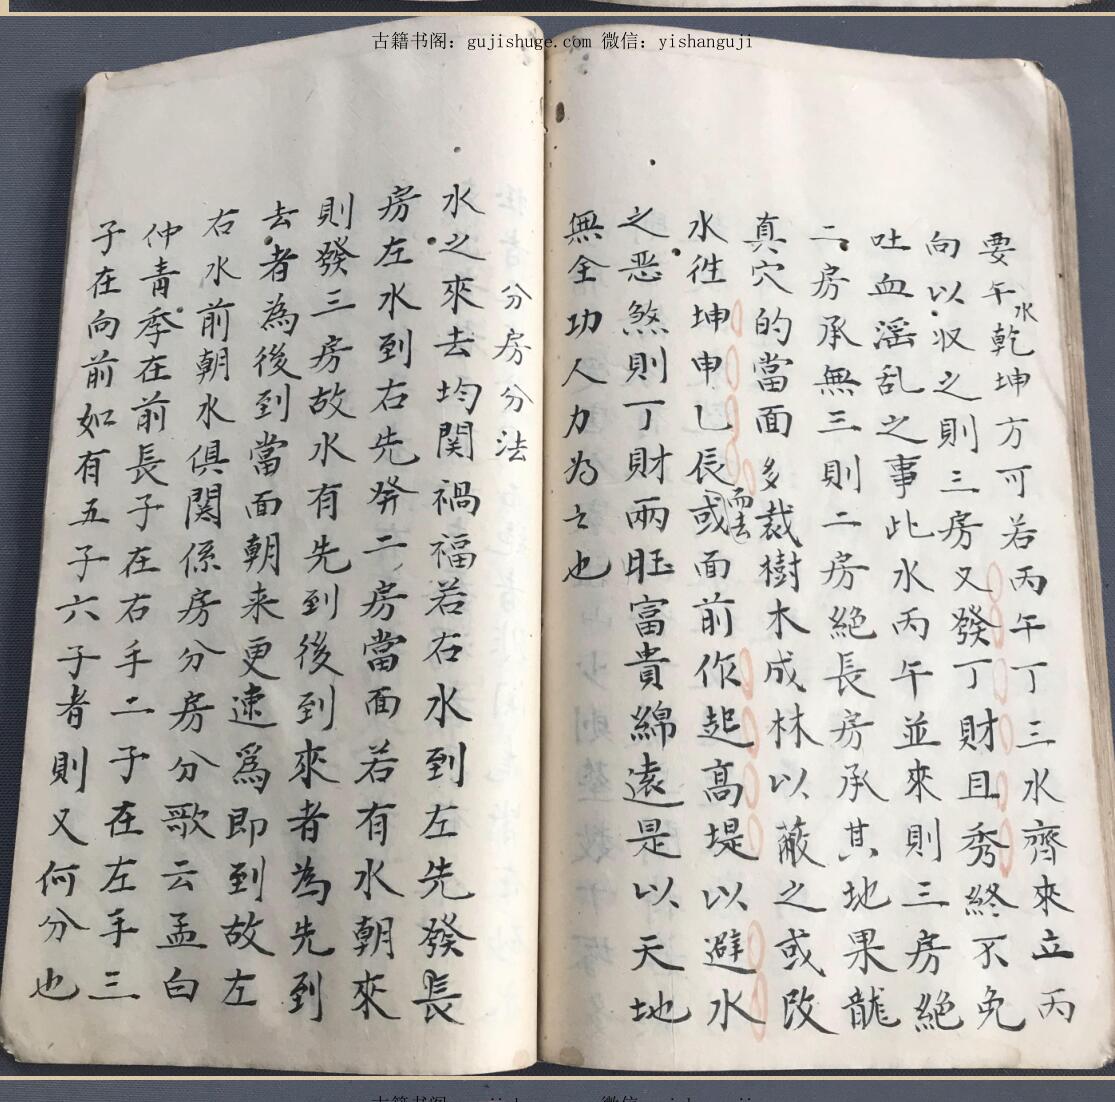 古籍书阁：gujishuge.com 微信：yishanguji
要午水乾坤方可若丙午丁三水齊來立丙
向以収之則三房又發丁財且秀終不免
吐血滛乱之事此水丙午並來則三房絕
二房承無三則二房絕長房承其地果龍
真穴的當面多栽樹木成林以蔽之或改
水徃坤申乚辰而去或面前作起高堤以避水
之恶煞則丁財兩旺富貴綿遠是以天地
無全功人力为之也
分房分法
水之來去均関禍福若右水到左先發長
房左水到右先發二房當面若有水朝來
則發三房故水有先到後到來者為先到
去者為後到當面朝来更速爲即到故左
右水前朝水俱関係房分房分歌云孟白
仲青季在前長子在右手二子在左手三
子在向前如有五子六子者則又何分也